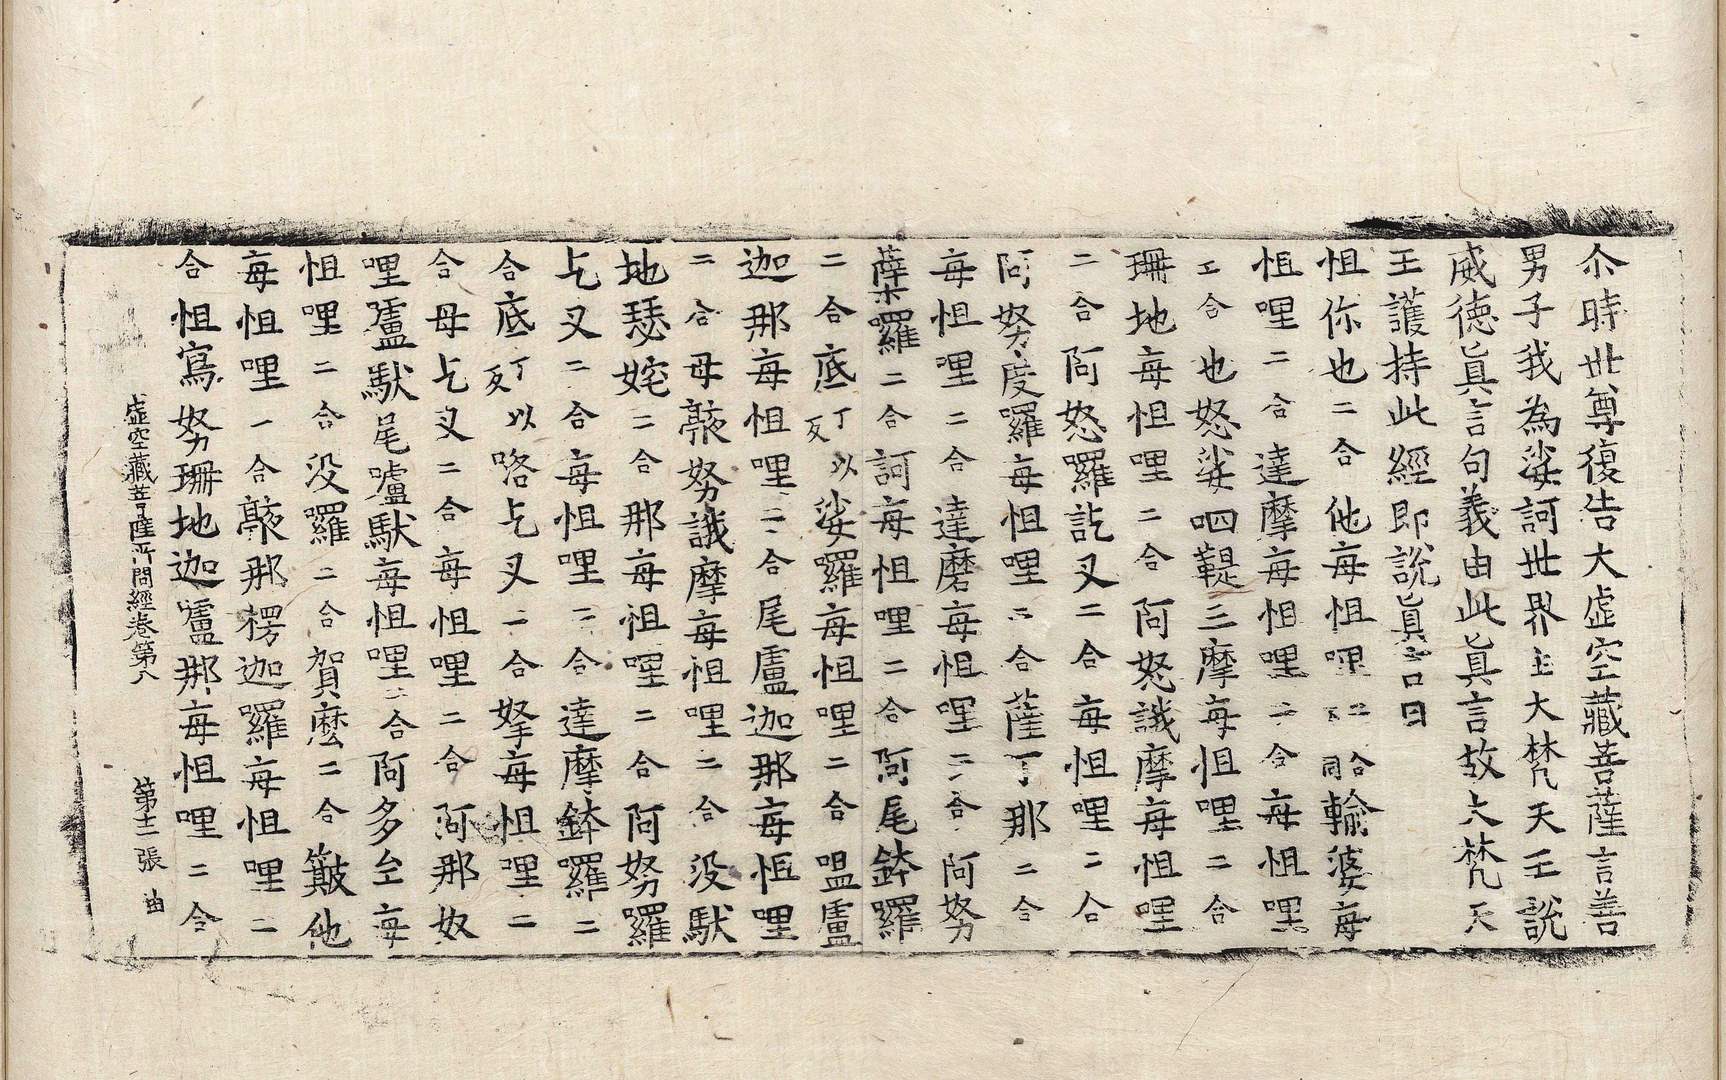 尒時世尊復告大虛空藏菩薩言善
男子我為娑訶世界主大梵天王說
威徳眞言句義由此眞言故大梵天
王護持此經即說眞言曰
怛你也二合他毎怛哩二合下同輸婆毎
怛哩二合達摩毎怛哩二合毎怛哩
二合也怒娑呬鞮三摩毎怛哩二合
珊地毎怛哩二合阿怒議摩毎怛哩
二合阿怒羅訖叉二合毎怛哩二合
阿努度羅毎怛哩二合薩丁那二合
毎怛哩二合達磨毎怛哩二合阿努
蘖羅二合訶毎怛哩二合阿尾鉢羅
二合底丁以反娑羅毎怛哩二合嗢盧
迦那毎怛哩二合尾盧迦那毎怛哩
二合母㪍努議摩毎怛哩二合没馱
地瑟姹二合那毎怛哩二合阿努羅
乞叉二合毎怛哩二合達摩鉢羅二
合底丁以反咯乞叉二合拏毎怛哩二
合母乞叉二合毎怛哩二合阿那奴
哩盧馱尾嚧馱毎怛哩二合阿多㘴毎
怛哩二合没羅二合賀麽二合簸他
毎怛哩二合㪍那楞迦羅毎怛哩二
合怛寫努珊地迦盧那毎怛哩二合
虛空藏菩薩所問經卷第八 第十二張 由